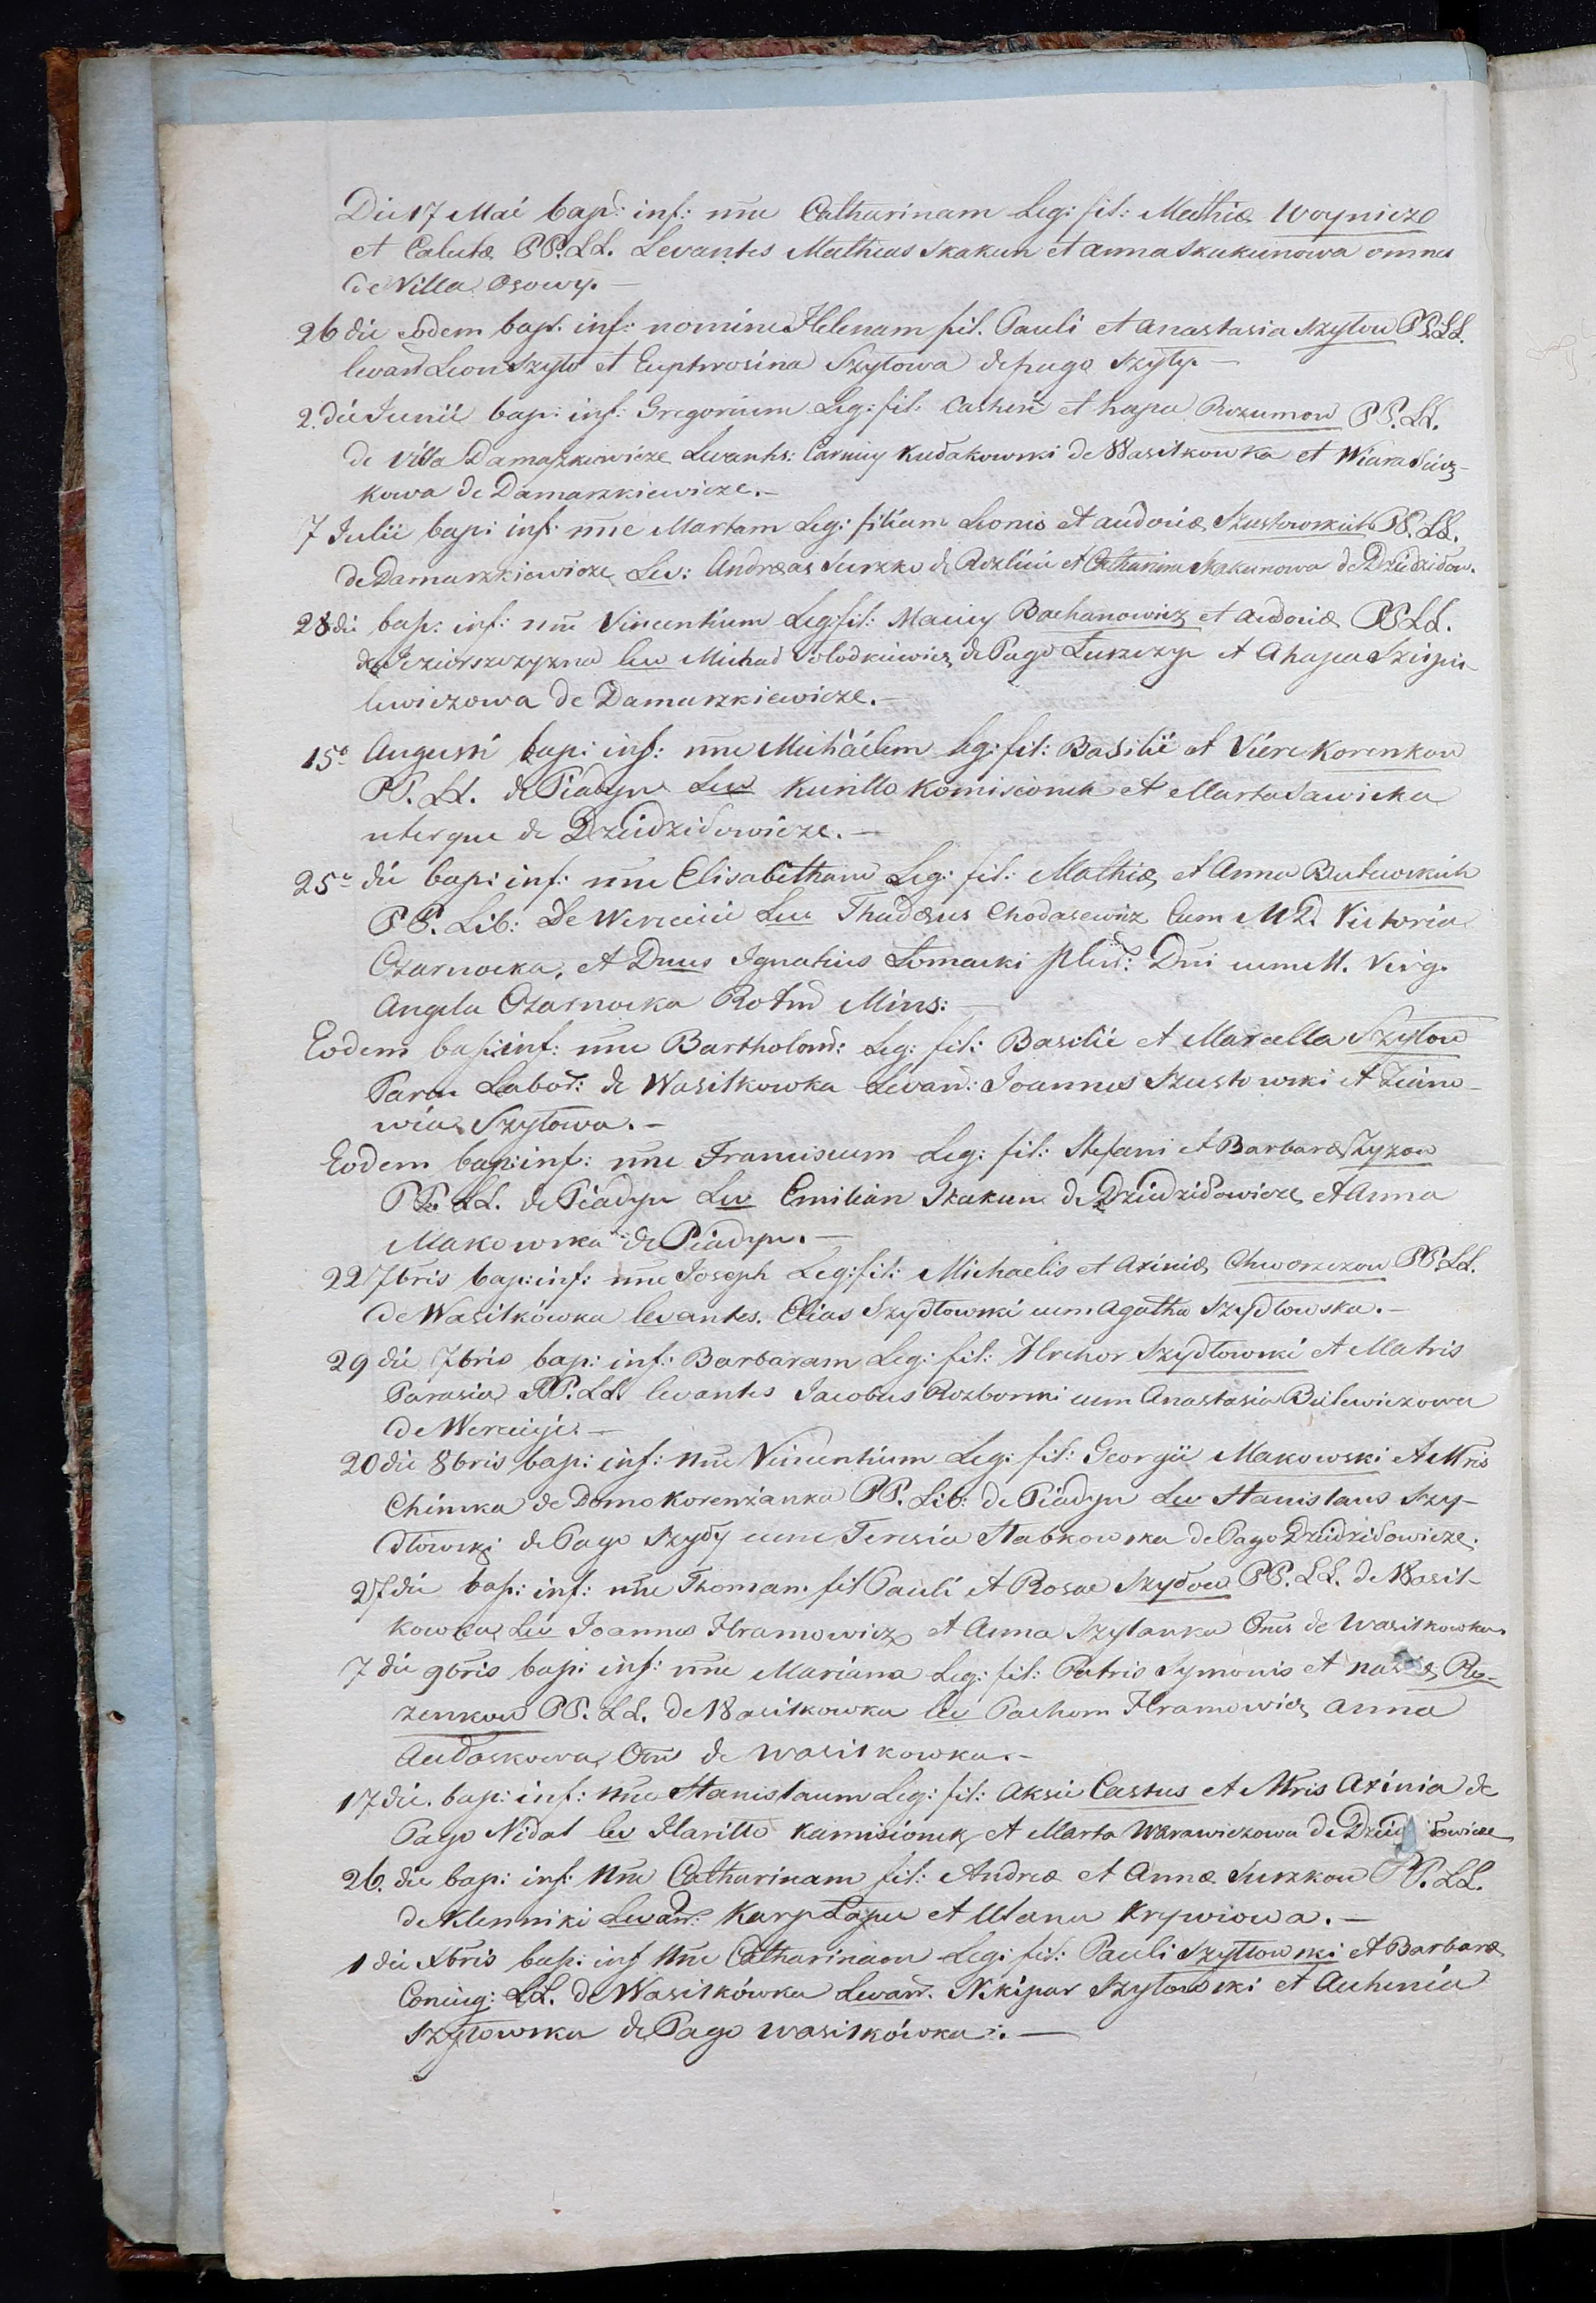 Die 17 Mai bap: inf: nne Catharinam Leg: fil: Mathiæ Woynicze
et Calutæ PP. LL. Levantes Mathias Skakun et Anna Skakunowa omnes
de Villa Osowy. —
26 die eodem bapt. inf: nomine Helenam fil. Pauli et Anastasia Szytow PP. LL.
levant Leon Szyto et Euphrosina Szytowa de pago Szyty. —
2. die Junii bap: inf: Gregorium Leg: fil: et hapa Rozumow PP. LL.
de Villa Damaszkiewicze Levants: Kudakowski de Wasilkowka et Wiara
kowa de Damaszkiewicze. —
7 Julii bap: inf: nne Martam Leg: filiam Leonis et Audociæ Szustowskich PP. LL.
de Damarzkiewicze Lev: Andreas Surzko de et Catharina Skakunowa de Dziedzidow.
28 die bap: inf: nne Vincentium Leg: fil: Maciey Bachanowicz et Audociæ PP LL.
de Jeziorszczyzna lev Michad Solodkiewicz de Pago Luszczyc et Ahapa Szirpi-
lewiczowa de Damarzkiewicze. —
15a Augusti bap: inf: nne Michàélem leg: fil: Basilii et Viere Korenkow
PP. LL. de Piadyn Lev Kurillo Komisionek et Marta Sawicka
uterque de Dziedzidowicze. —
25a die bap: inf: nne Elisabetham Leg: fil: Mathiæ et Anna Butewskich
PP. Lib: De Wereciei Lev Thadæus Chodasewicz Cum M D. Victoria
Czarnocka, et Dnus Ignatius Lomacki Dni cum M. Virg.
Angela Czarnocka Rotm Mins: —
Eodem bap: inf: nne Bartholom: Leg: fil: Basilii et Marcella Szytow
Paren Labor: de Wasilkowka Levan: Joannes Szustowski et Zieno-
wia Szytowa. —
Eodem bap: inf: nne Franciscum Leg: fil: Stefani et Barbaræ Szyzow
PP. LL. de Piadyn Lev Emilian Skakun de Dziedzidowicze et Anna
Makowska de Piadyn. —
22 7bris bap: inf: nne Joseph Leg: fil: Michaelis et Axiniæ Chworzczow PP. LL.
de Wasilkówka levantes. Elias Szydlowski cum Agatha Szydlowska. —
29 die 7bris bap: inf: Barbaram Leg: fil: Hrehor Szydlowski et Matris
Parasia PP. LL. levantes Jacobus Rozborski cum Anastasia Butewiczowa
de —
20 die 8bris bap: inf: nne Vincentium Leg: fil: Georgii Makowski et Mris
Chimka de Domo Korenzanka PP. Lib: de Piadyn Lev Stanislaus Szy-
dlowski de Pago Szydy cum Teresia Stabkowska de Pago Dziedzidowicze.
27 die bap: inf: nne Thoman. fil Pauli et Rosae Szydow PP. LL. de Wasil-
kowka Lev Joannes Hramowicz et Anna Szytanka Ones de Wasilkowka.
7 die 9bris bap: inf: nne Mariana Leg: fil: Patris Symonis et Ro-
zenkow PP. LL. de Wasilkowka lev Pachom Hramowicz Anna
Audaskowa Om de Wasilkowka. —
17 die. bap: inf: nne Stanislaum Leg: fil: Aksii Castus et Mris Axinia de
Pago Nidal lev Harillo Kamisionek et Marta Warawiczowa de
26. die bap: inf: nne Catharinam fil: Andreæ et Annæ Surzkow PP. LL.
de Klenniki Levan: Karp Lapu et Ulana Krywiowa. —
1 die Xbris bap: inf nne Catharinam Leg: fil: Pauli Szytlowski et Barbaræ
Coniug: LL. de Wasilkówka Levan. Nikipar Szytowski et Auhenia
Szytowska de Pago Wasilkówka. —